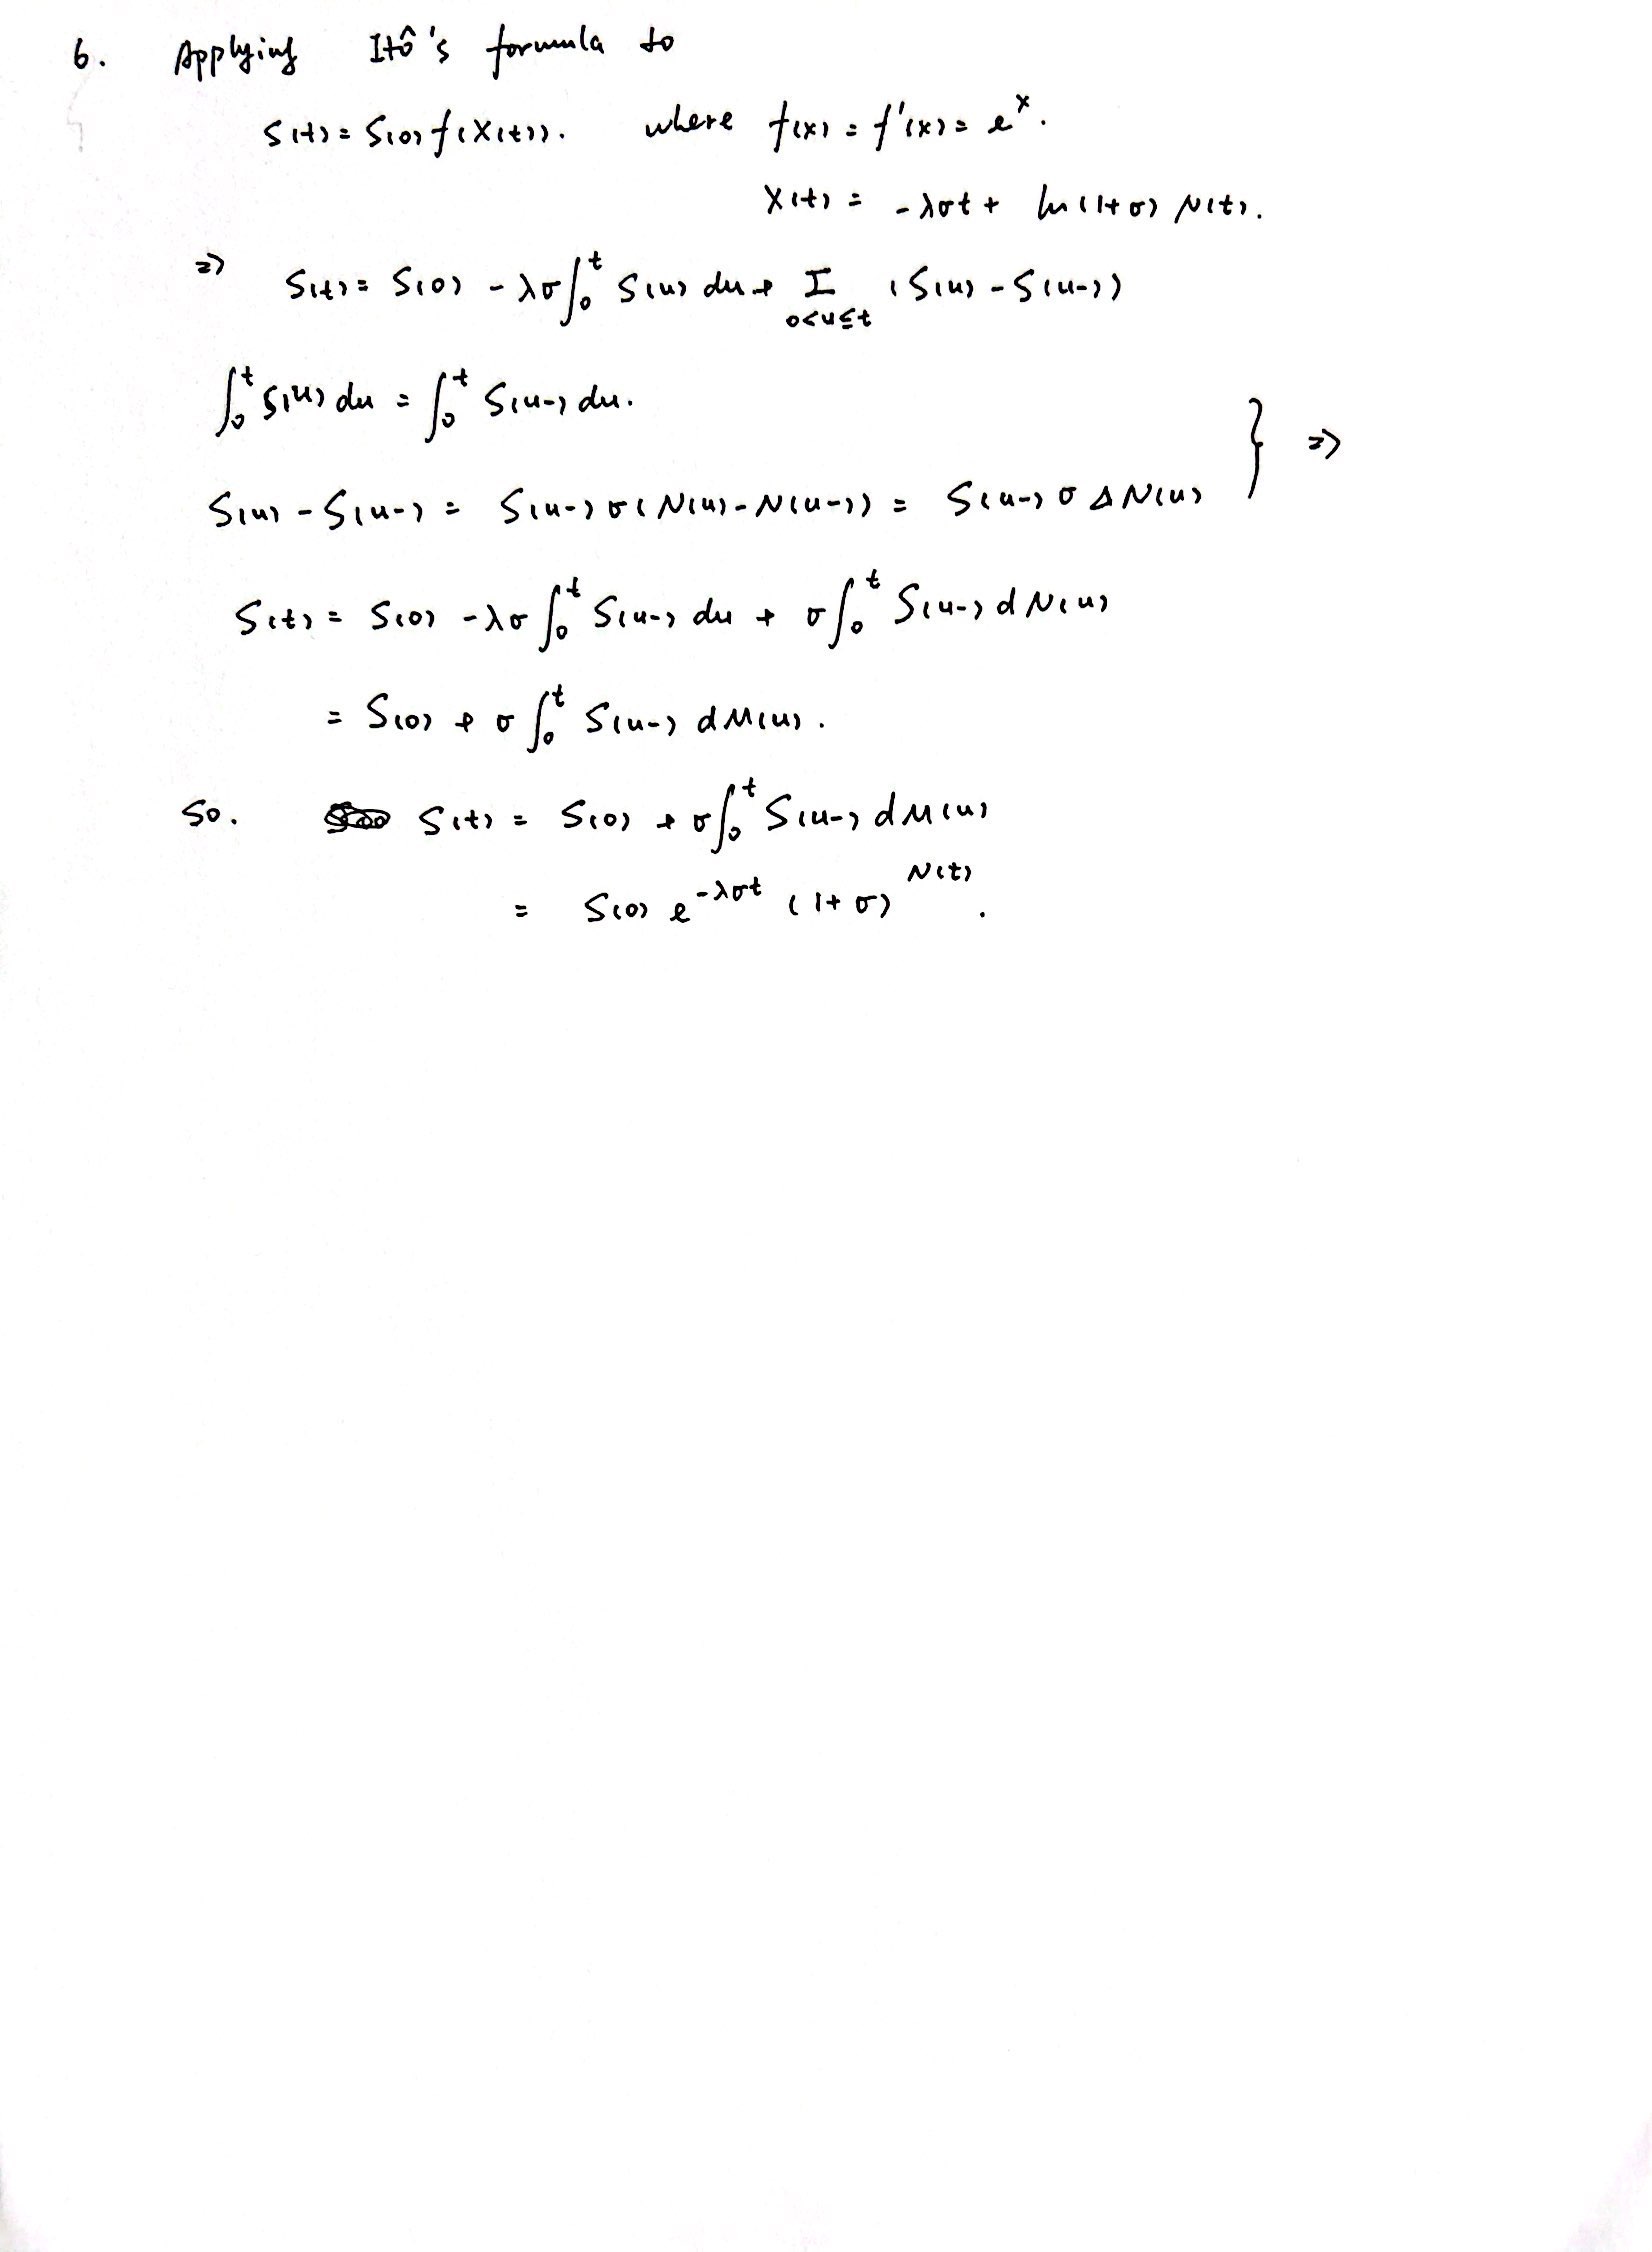 6. Applying Itô's formula to
S(t) = S(0) f(X(t)). where f(x) = f'(x) = e^x.
X(t) = -λσt + ln(1+σ) N(t).
⇒ S(t) = S(0) - λσ∫_0^t S(u) du + Σ_{0<u≤t} (S(u) - S(u-))
∫_0^t S(u) du = ∫_0^t S(u-) du.
} ⇒
S(u) - S(u-) = S(u-) σ(N(u) - N(u-)) = S(u-) σ ΔN(u)
S(t) = S(0) - λσ ∫_0^t S(u-) du + σ∫_0^t S(u-) dN(u)
= S(0) + σ ∫_0^t S(u-) dM(u).
So. S(t) = S(0) + σ∫_0^t S(u-) dM(u)
= S(0) e^{-λσt} (1+σ)^{N(t)}.